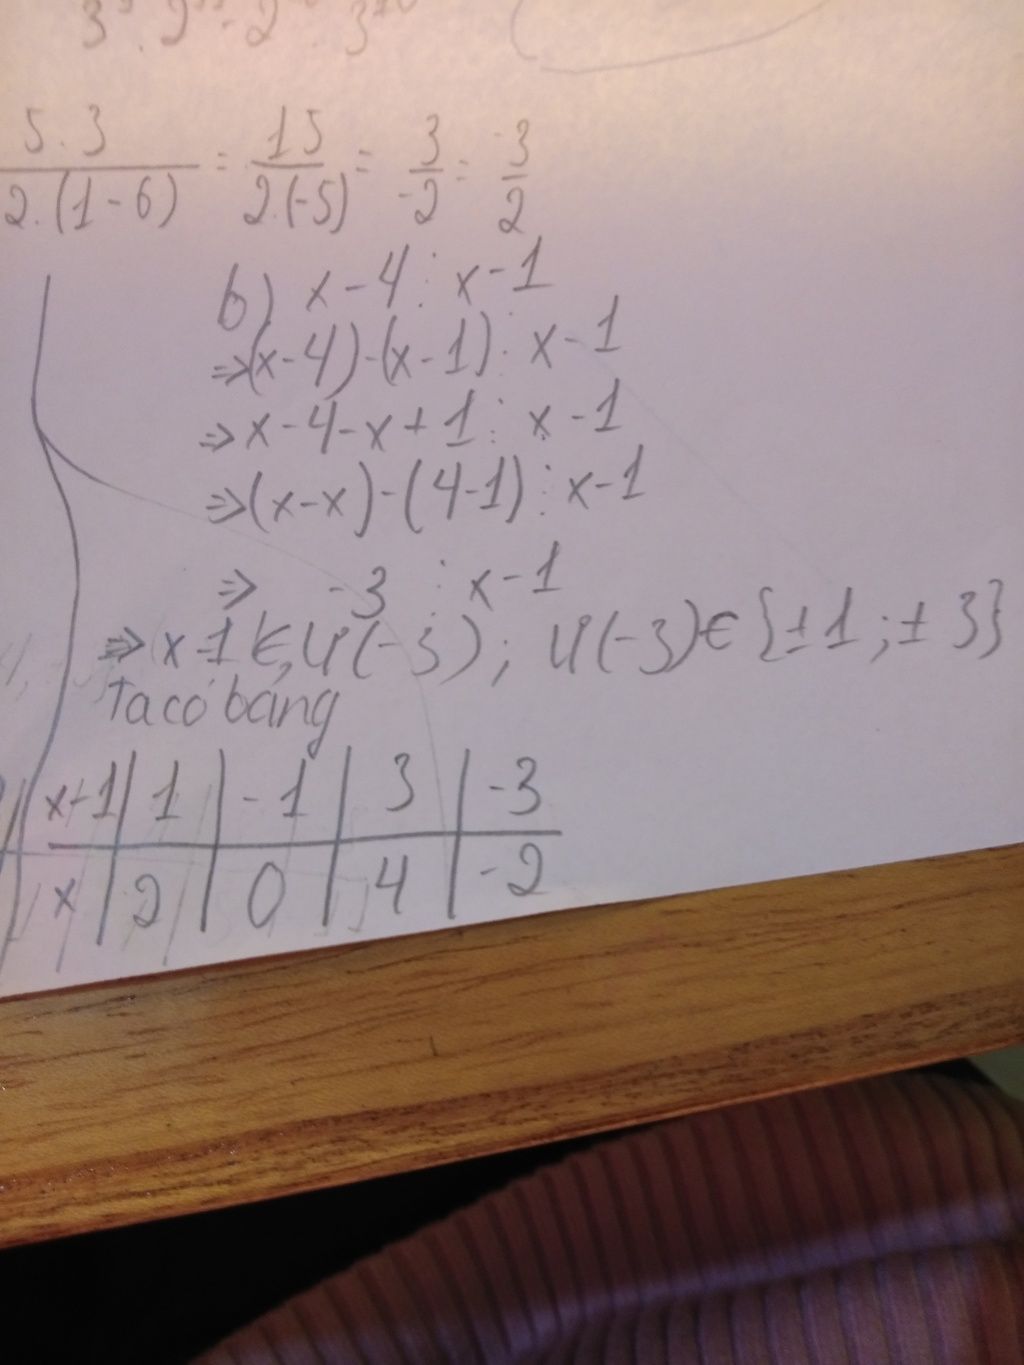 5.3/2.(1-6) = 15/2.(-5) = 3/-2 = -3/2
b) x-4 ⋮ x-1
⇒(x-4)-(x-1) ⋮ x-1
⇒x-4-x+1 ⋮ x-1
⇒(x-x)-(4-1) ⋮ x-1
⇒ -3 ⋮ x-1
⇒ x-1 ∈ Ư(-3); Ư(-3)∈{±1;±3}
Ta có bảng
x-1 | 1 | -1 | 3 | -3
x | 2 | 0 | 4 | -2